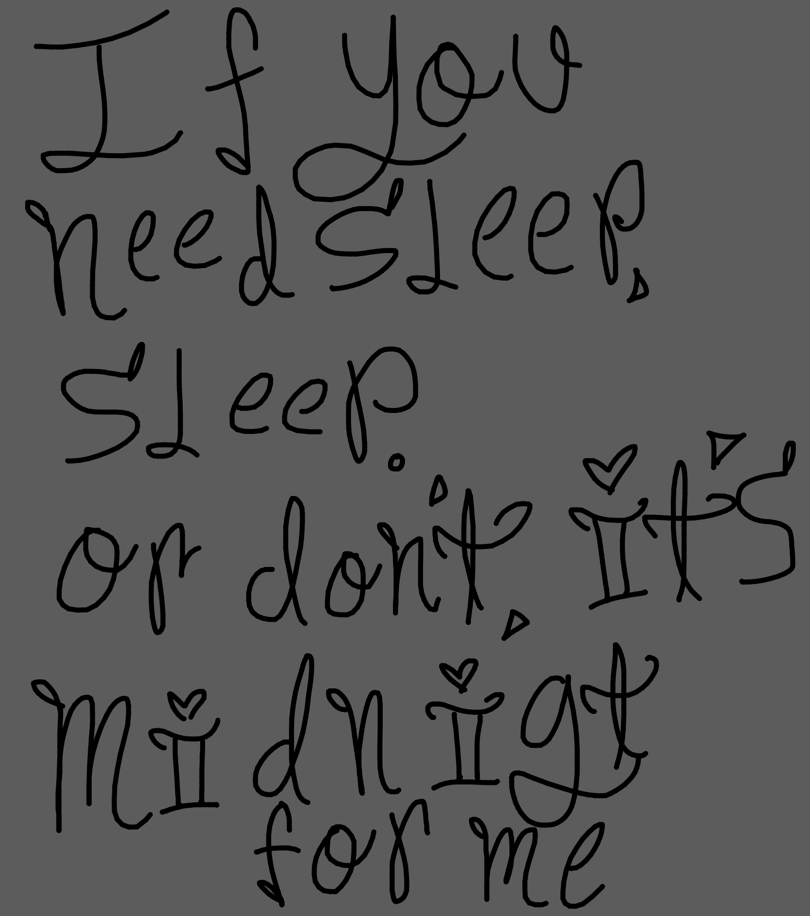 If you
need sleep,
sleep.
or don't, it's
midnigt
for me